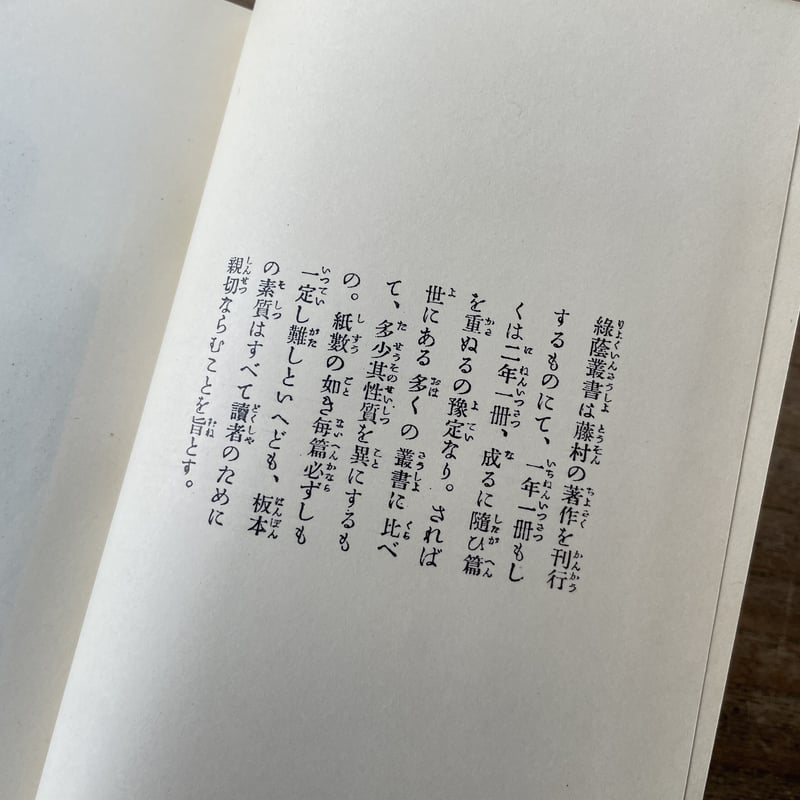 綠蔭叢書は藤村の著作を刊行
するものにて、一年一冊もし
くは二年一冊、成るに隨ひ篇
を重ぬるの豫定なり。されば
世にある多くの叢書に比べ
て、多少其性質を異にするも
の。紙數の如き每篇必ずしも
一定し難しといへども、板本
の素質はすべて讀者のために
親切ならむことを旨とす。